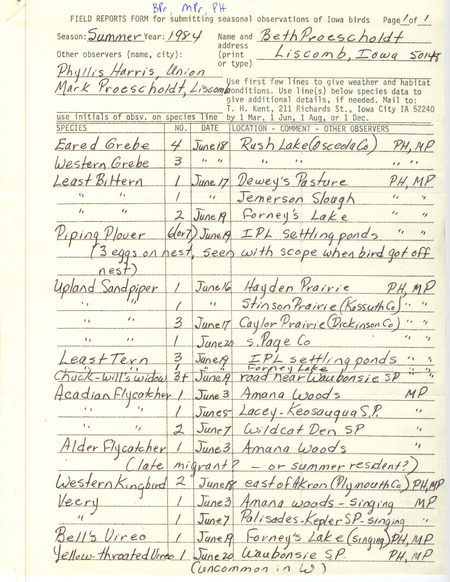 BPr, MPr, PH
FIELD REPORTS FORM for submitting seasonal observations of Iowa birds Page 1 of 1
Season: Summer Year: 1984 Name and address (print or type) Beth Proescholdt
Liscomb, Iowa 50148
Other observers (name, city):
Phyllis Harris, Union
Mark Proescholdt, Liscomb
Use first few lines to give weather and habitat
conditions. Use line(s) below species data to
give additional details, if needed. Mail to:
T. H. Kent, 211 Richards St., Iowa City IA 52240
use initials of obsv. on species line by 1 Mar, 1 Jun, 1 Aug, or 1 Dec.
SPECIES NO. DATE LOCATION - COMMENT - OTHER OBSERVERS
Eared Grebe 4 June 18 Rush Lake (Osceola Co) PH, MP
Western Grebe 3 " " " " " "
Least Bittern 1 June 17 Dewey's Pasture PH, MP
" " 1 " Jemerson Slough " "
" " 2 June 19 Forney's Lake " "
Piping Plover 6(or7) June 19 IPL settling ponds " "
(3 eggs on nest, seen with scope when bird got off
nest)
Upland Sandpiper 1 June 16 Hayden Prairie PH, MP
" " 1 " Stinson Prairie (Kossuth Co) " "
" " 3 June 17 Caylor Prairie (Dickinson Co) " "
" " 1 June 20 S. Page Co " "
Least Tern 3 June 19 IPL settling ponds " "
" " 1 " Forney Lake " "
Chuck-will's widow 3+ June 19 road near Waubonsie SP " "
Acadian Flycatcher 1 June 3 Amana Woods MP
" " 1 June 5 Lacey-Keosauqua S.P. "
" " 2 June 7 Wildcat Den SP "
Alder Flycatcher 1 June 3 Amana Woods "
(late migrant? - or summer resident?)
Western Kingbird 2 June 18 east of Akron (Plymouth Co) PH, MP
Veery 1 June 3 Amana woods - singing MP
" 1 June 7 Palisades-Kepler SP - singing "
Bell's Vireo 1 June 19 Forney's Lake (singing) PH, MP
Yellow-throated Vireo 1 June 20 Waubonsie SP PH, MP
(uncommon in W)